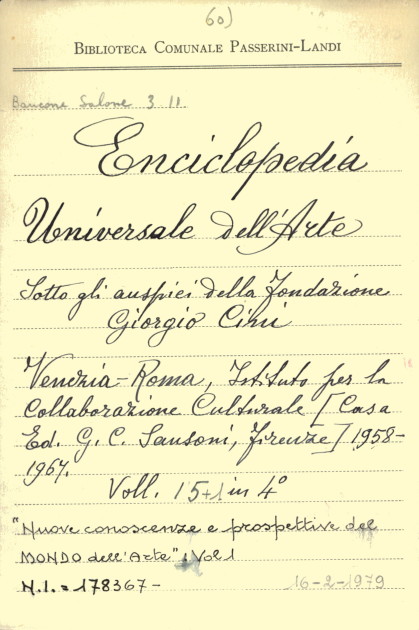 60)
BIBLIOTECA COMUNALE PASSERINI-LANDI
Bancone Salone 3 11.
Enciclopedia
Universale dell'Arte
Sotto gli auspici della Fondazione
Giorgio Cini
Venezia-Roma, Istituto per la
Collaborazione Culturale [Casa
Ed. G. C. Sansoni, Firenze] 1958-
1967.
Voll. 15+1 in 4°
"Nuove conoscenze e prospettive del
MONDO dell'Arte" Vol 1
N.I. = 178367-
16-2-1979